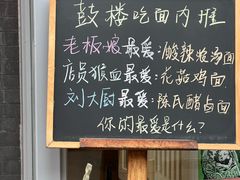 鼓楼吃面内推
老板娘最爱:酸辣烩汤面
店员猴血最爱:花菇鸡面
刘大厨最爱:陈氏醋卤面
你的最爱是什么?